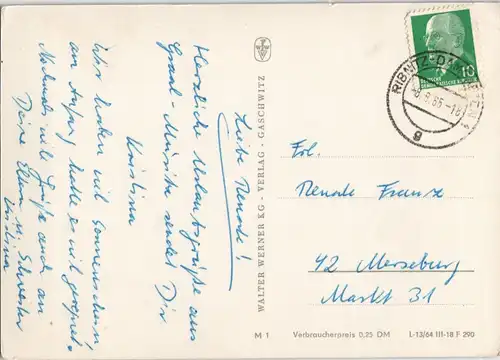 Liebe Renate!
Herzliche Urlaubsgrüße aus
Graal-Müritz sendet Dir
Kristina
Wir haben viel Sonnenschein,
am Anfang hatte es viel geregnet.
Nochmals viele Grüße auch an
Deine Eltern u. Schwester
Kristina
WALTER WERNER KG - VERLAG - GASCHWITZ
M 1
DEUTSCHE
DEMOKRATISCHE REPUBLIK
10
RIBNITZ-DA
8.65.-18
g
Frl.
Renate Franz
42 Merseburg
Markt 31
Verbraucherpreis 0,25 DM
L-13/64 III-18 F 290